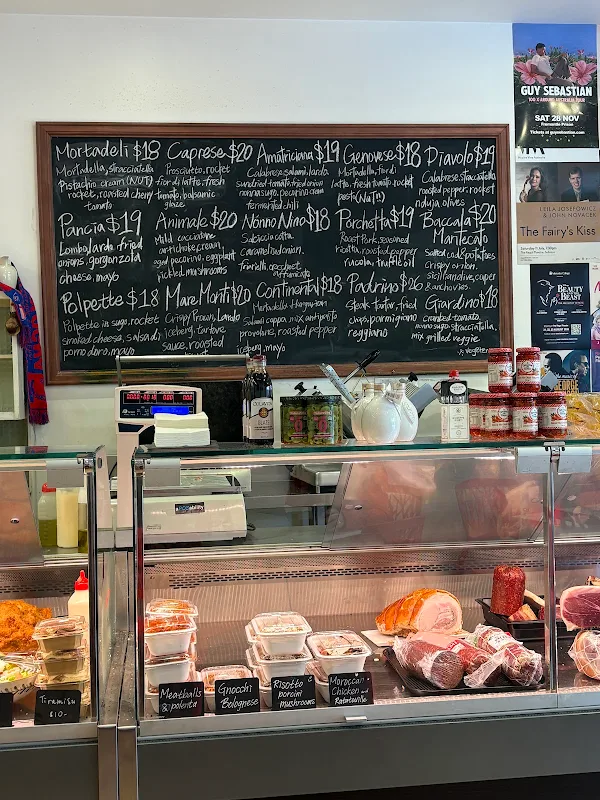 Mortadeli $18
Mortadella, stracciatella
Pistachio cream (NUT)
rocket, roasted cherry
tomato
Caprese $20
Prosciutto, rocket
fior di latte, fresh
tomato, balsamic
glaze
Amatriciana $19
Calabrese salami, lardo
sundried tomato, fried onion
nonna sugo, pecorino crema
fermented chili
Genovese $18
Mortadella, fiordi
latte, fresh tomato, rocket
pesto (NuTn)
Diavolo $19
Calabrese, stracciatella
roasted pepper, rocket
nduja, olives
Pancia $19
Lombo, lardo, fried
onions, gorgonzola
cheese, mayo
Animale $20
Mild cacciatore
artichoke cream,
aged pecorino, eggplant
pickled mushrooms
Nonno Nino $18
Caramelised onion,
Porchetta $19
Roast Pork, seasoned
ricotta, roasted pepper
rucola, truffle oil
Baccalà $20
Mantecato
Salted cod & potatoes
crispy onion,
sicilian olive, caper
& anchovies
Polpette $18
Polpette in sugo, rocket
smoked cheese, salsa di
pomodoro, mayo
Mare Monti $20
Crispy Prawn, Lardo
iceberg, tartare
sauce, roasted
Continental $18
Mortadella, Hungarian
Salami, coppa, mix antipasto
provolone, roasted pepper
iceberg, mayo
Padrino $26
Steak tartar, fried
chips, parmigiano
reggiano
Giardino $18
crumbed tomato,
nonna sugo, stracciatella,
mix grilled veggie
GUY SEBASTIAN
100 X AROUND AUSTRALIA TOUR
SAT 28 NOV
Fremantle Prison
Tickets at guysebastian.com
LEILA JOSEFOWICZ
& JOHN NOVACEK
The Fairy's Kiss
BEAUTY
BEAST
GEORGE
Tiramisu
$10-
Meatballs
& polenta
Gnocchi
Bolognese
Risotto
porcini
mushrooms
Moroccan
Chicken and
Ratatouille